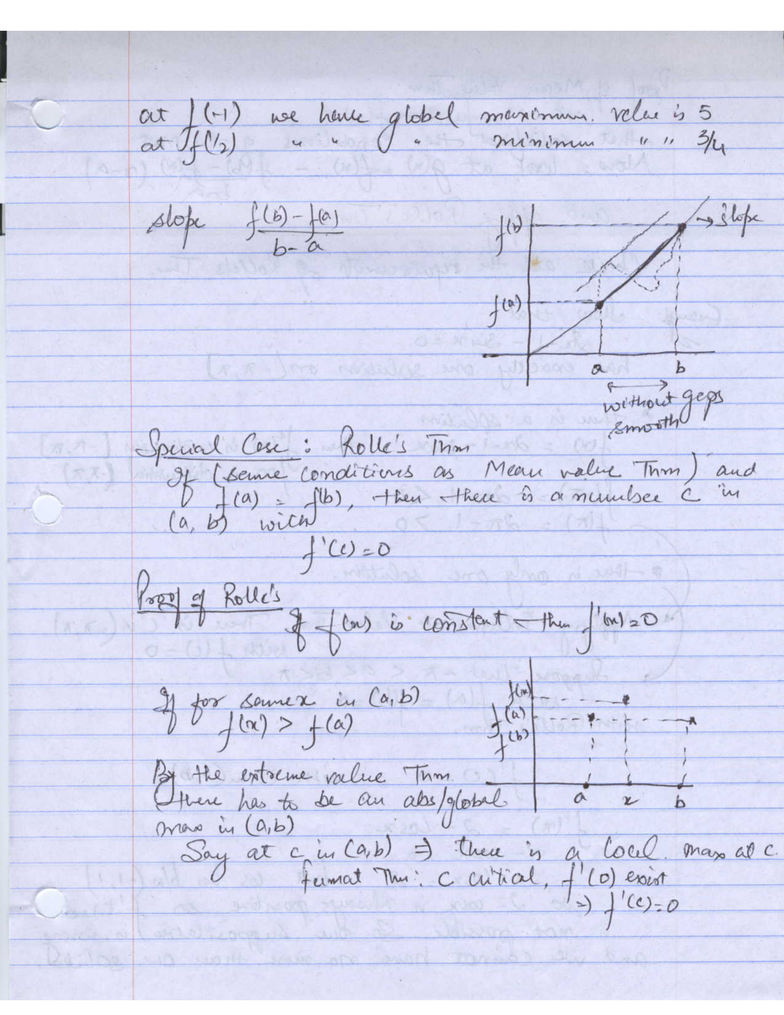 at f(-1) we have global maximum. value is 5
at f(1/2) " " " minimum " " 3/4
slope f(b) - f(a)
b - a
f(b)
→ slope
f(a)
a b
without gaps
smooth
Special Case : Rolle's Thm
If (same conditions as Mean value Thm) and
f(a) = f(b), then there is a number c in
(a, b) with
f'(c) = 0
Proof of Rolle's
If f(x) is constant then f'(x) = 0
If for some x in (a,b)
f(x) > f(a)
f(x)
f(a)
f(b)
a x b
By the extreme value Thm
there has to be an abs/global
max in (a,b)
Say at c in (a,b) ⇒ there is a local max at c.
fermat Thm: c critical, f'(c) exist
⇒ f'(c) = 0